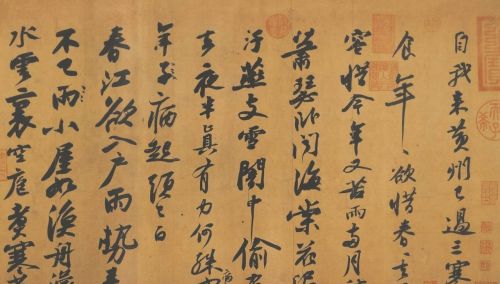 自我來黃州已過三寒
食年〻欲惜春〻
容惜今年又苦雨兩月
蕭瑟臥聞海棠花泥
汙燕支雪闇中偷
去夜半真有力何殊
病
年子病起頭已白
春江欲入戶雨勢
不已雨小屋如漁舟濛
水雲裏空庖煮寒